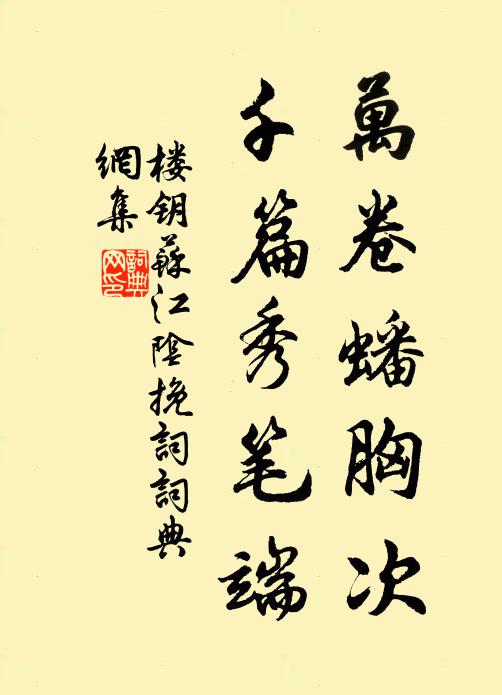 萬卷蟠胸次
千篇秀笔端
楼钥蘇江陰挽詞詞典
網集
詞典
网印